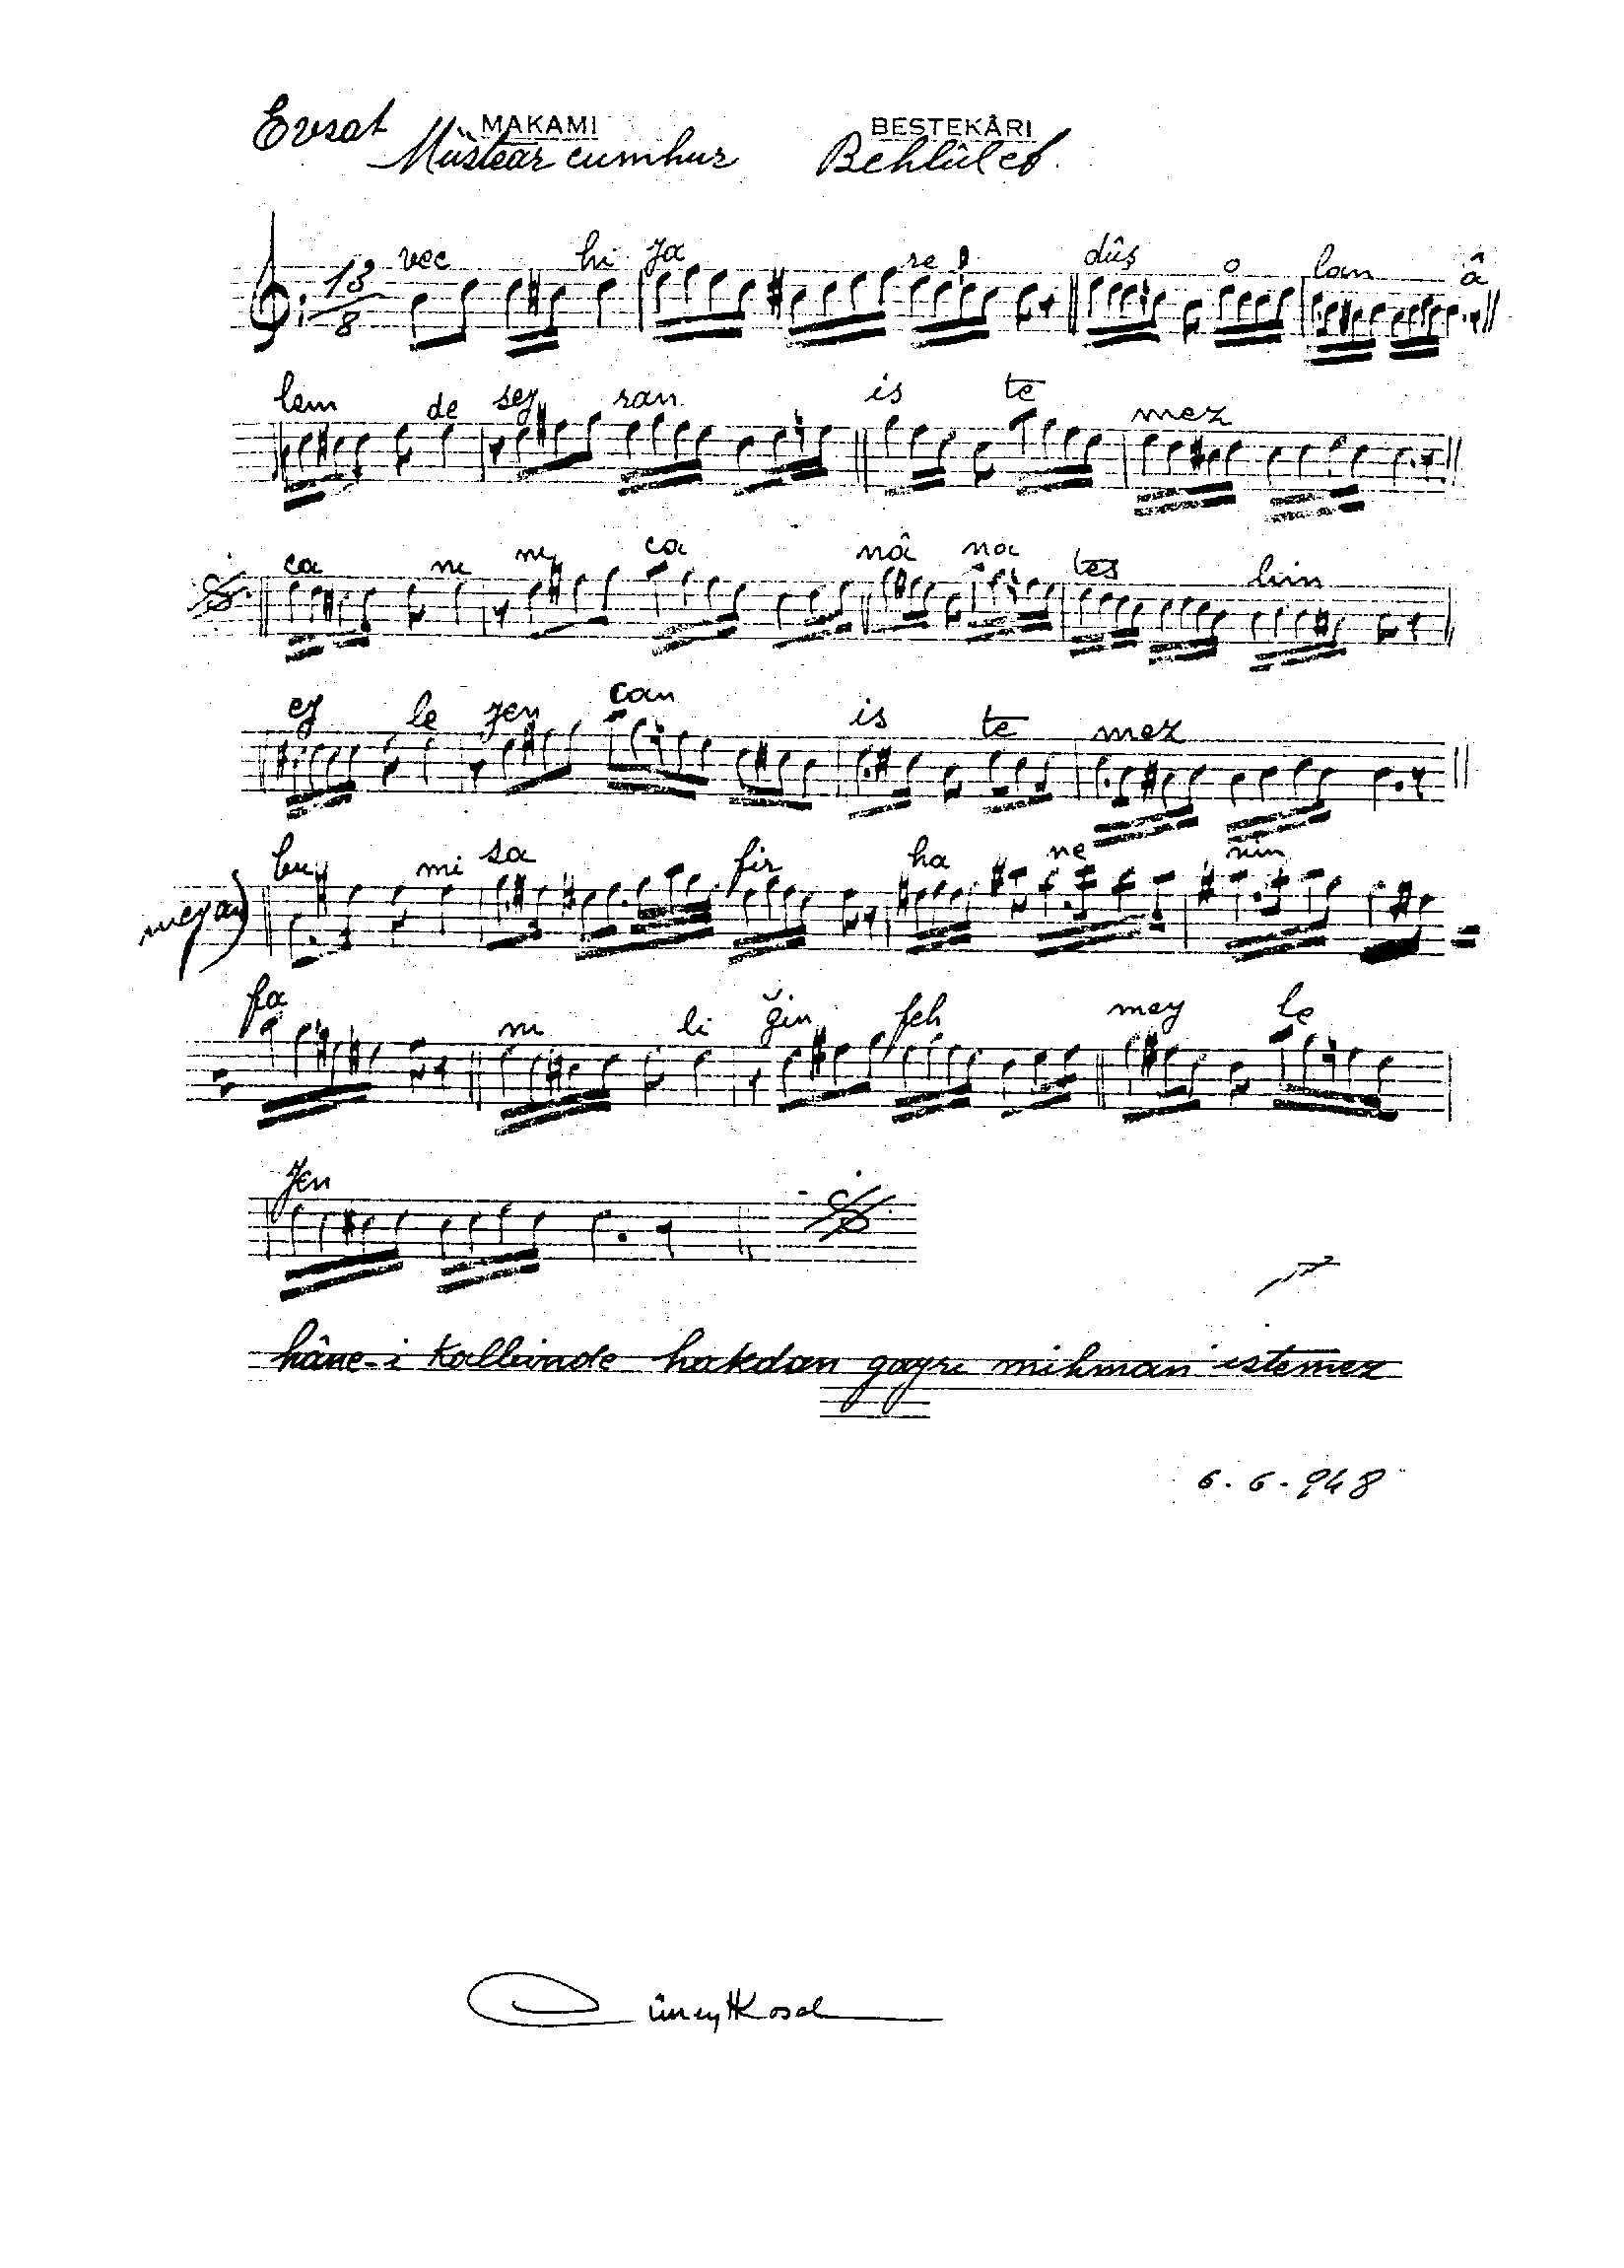 Evsat MAKAMI BESTEKÂRI
Müstear cumhur Behlûl ef.
13/8 vec hi ya re dûş o lan â
lem de sey ran is te mez
ca nı nı ca nâ na tes lim
ey le yen can is te mez
meyan) bu mi sa fir ha ne nin
fa ni li ğin feh mey le
yen
hâne-i kalbinde hakdan gayrı mihman istemez
6-6-948
Cüneyt Kosal